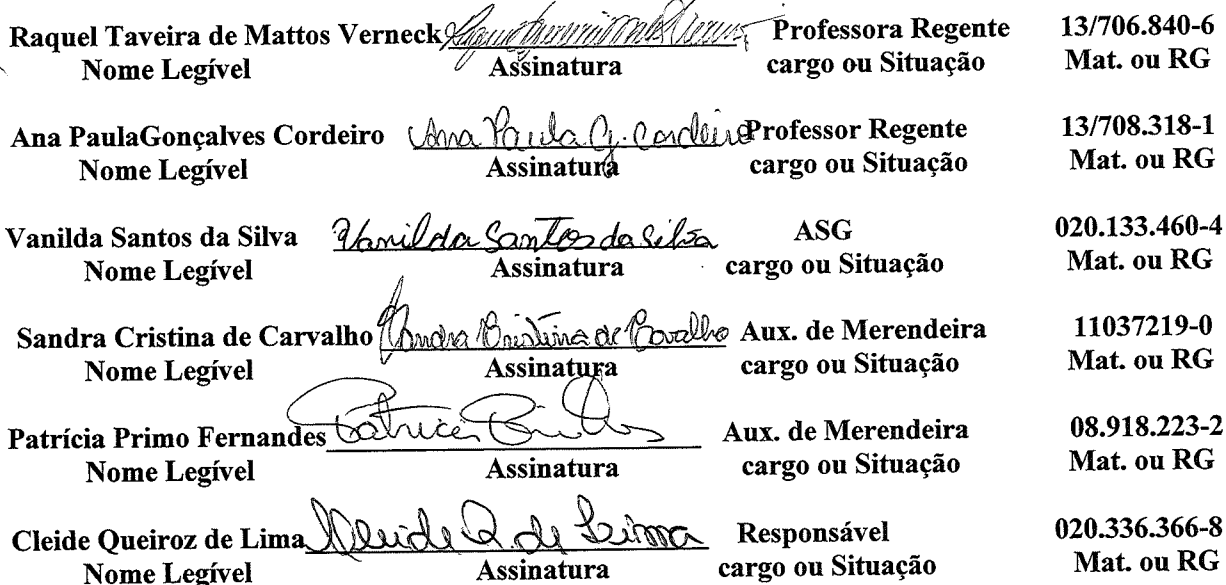 Raquel Taveira de Mattos Verneck Professora Regente 13/706.840-6
Nome Legível Assinatura cargo ou Situação Mat. ou RG
Ana PaulaGonçalves Cordeiro Ana Paula G. Cordeiro Professor Regente 13/708.318-1
Nome Legível Assinatura cargo ou Situação Mat. ou RG
Vanilda Santos da Silva Vanilda Santos da Silva ASG 020.133.460-4
Nome Legível Assinatura cargo ou Situação Mat. ou RG
Sandra Cristina de Carvalho Sandra Cristina de Carvalho Aux. de Merendeira 11037219-0
Nome Legível Assinatura cargo ou Situação Mat. ou RG
Patrícia Primo Fernandes Aux. de Merendeira 08.918.223-2
Nome Legível Assinatura cargo ou Situação Mat. ou RG
Cleide Queiroz de Lima Cleide Q. de Lima Responsável 020.336.366-8
Nome Legível Assinatura cargo ou Situação Mat. ou RG